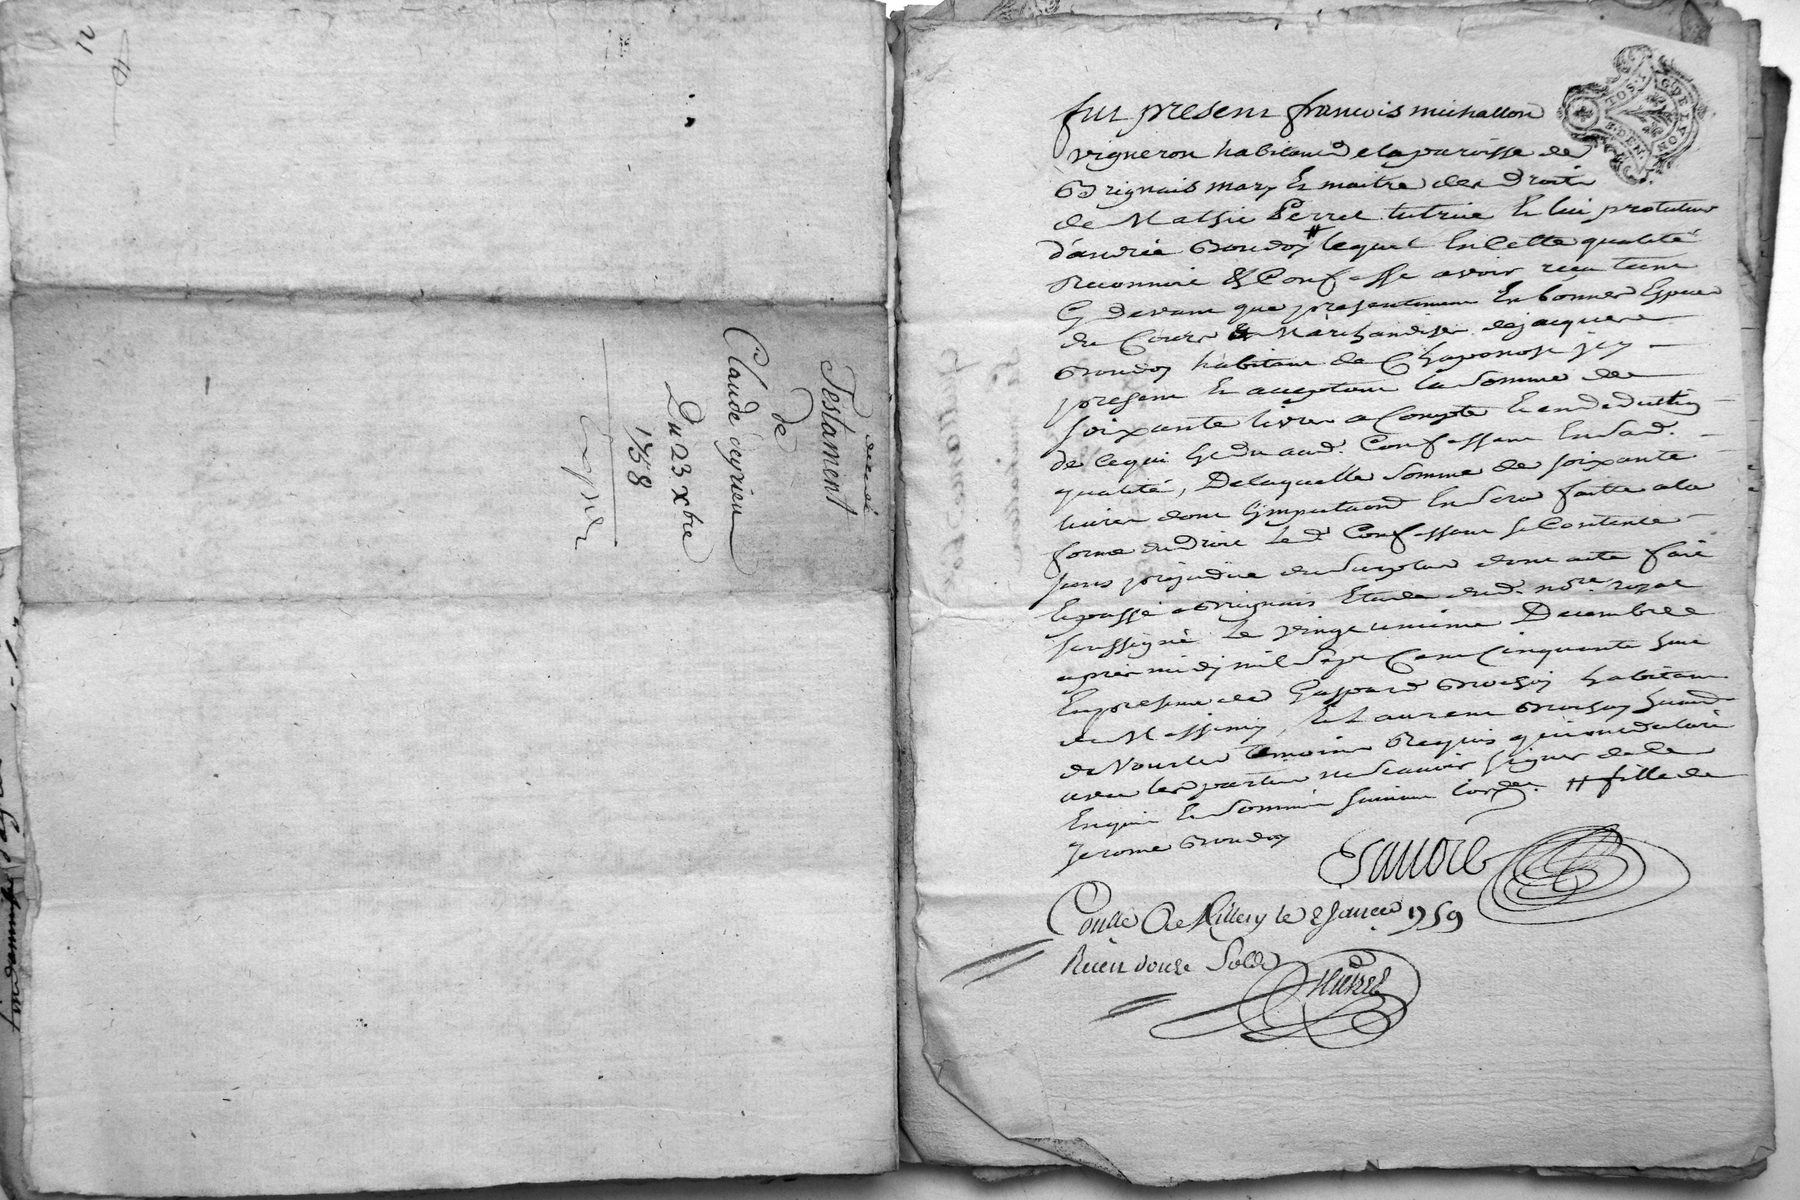 12
decedé
Testament
de
Claude deyrieu
Du 23 xbre
1758
GDE LYON
DEN.
fut present francois michallon
vigneron habitant de la paroisse de
Brignais mary et maitre des droits
de Perret tutrice et lui protuteur
d'andré Boudoy # lequel en cette qualité
reconnoit et Confesse avoir recu tant
Cy devant que presentement en bonnes Espèces
du Cours et Marchandises de jacques
Boudoy habitant de Chaponost icy
present et acceptant la somme de
soixante livres a Compte et en deduction
de ce qui est du aud. Confessant en sad.
qualité, De laquelle somme de soixante
livres dont l'imputaon en sera faitte a la
forme du droit led. Confessant se Contente
sans préjudice du surplus dont acte fait
et passé a Brignais Etude dud. nore. royal
soussigné le vingt unieme Decembre
apres midy mil sept Cent Cinquante huit
En presence de Gaspard habitant
de Messimy, et Laurent
de Vourles temoins Requis qui ont declaré
avec les parties ne scavoir signer de ce
Enquis et sommés suivant l'ordce. # fille de
Jerome Boudoy
Conllé a Millery le 2 Janvier 1759
Recu douze Sols